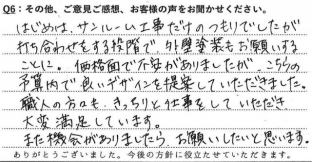 Q6：その他、ご意見ご感想、お客様の声をお聞かせください。
はじめは、サンルーム工事だけのつもりでしたが
打ち合わせをする段階で、外壁塗装もお願いする
ことに。価格面で不安がありましたが、こちらの
予算内で良いデザインを提案していただきました。
職人の方々も、きっちりと仕事をして いただき
大変満足しています。
また機会がありましたら、お願いしたいと思います。
ありがとうございました。今後の方針に役立たせていただきます。